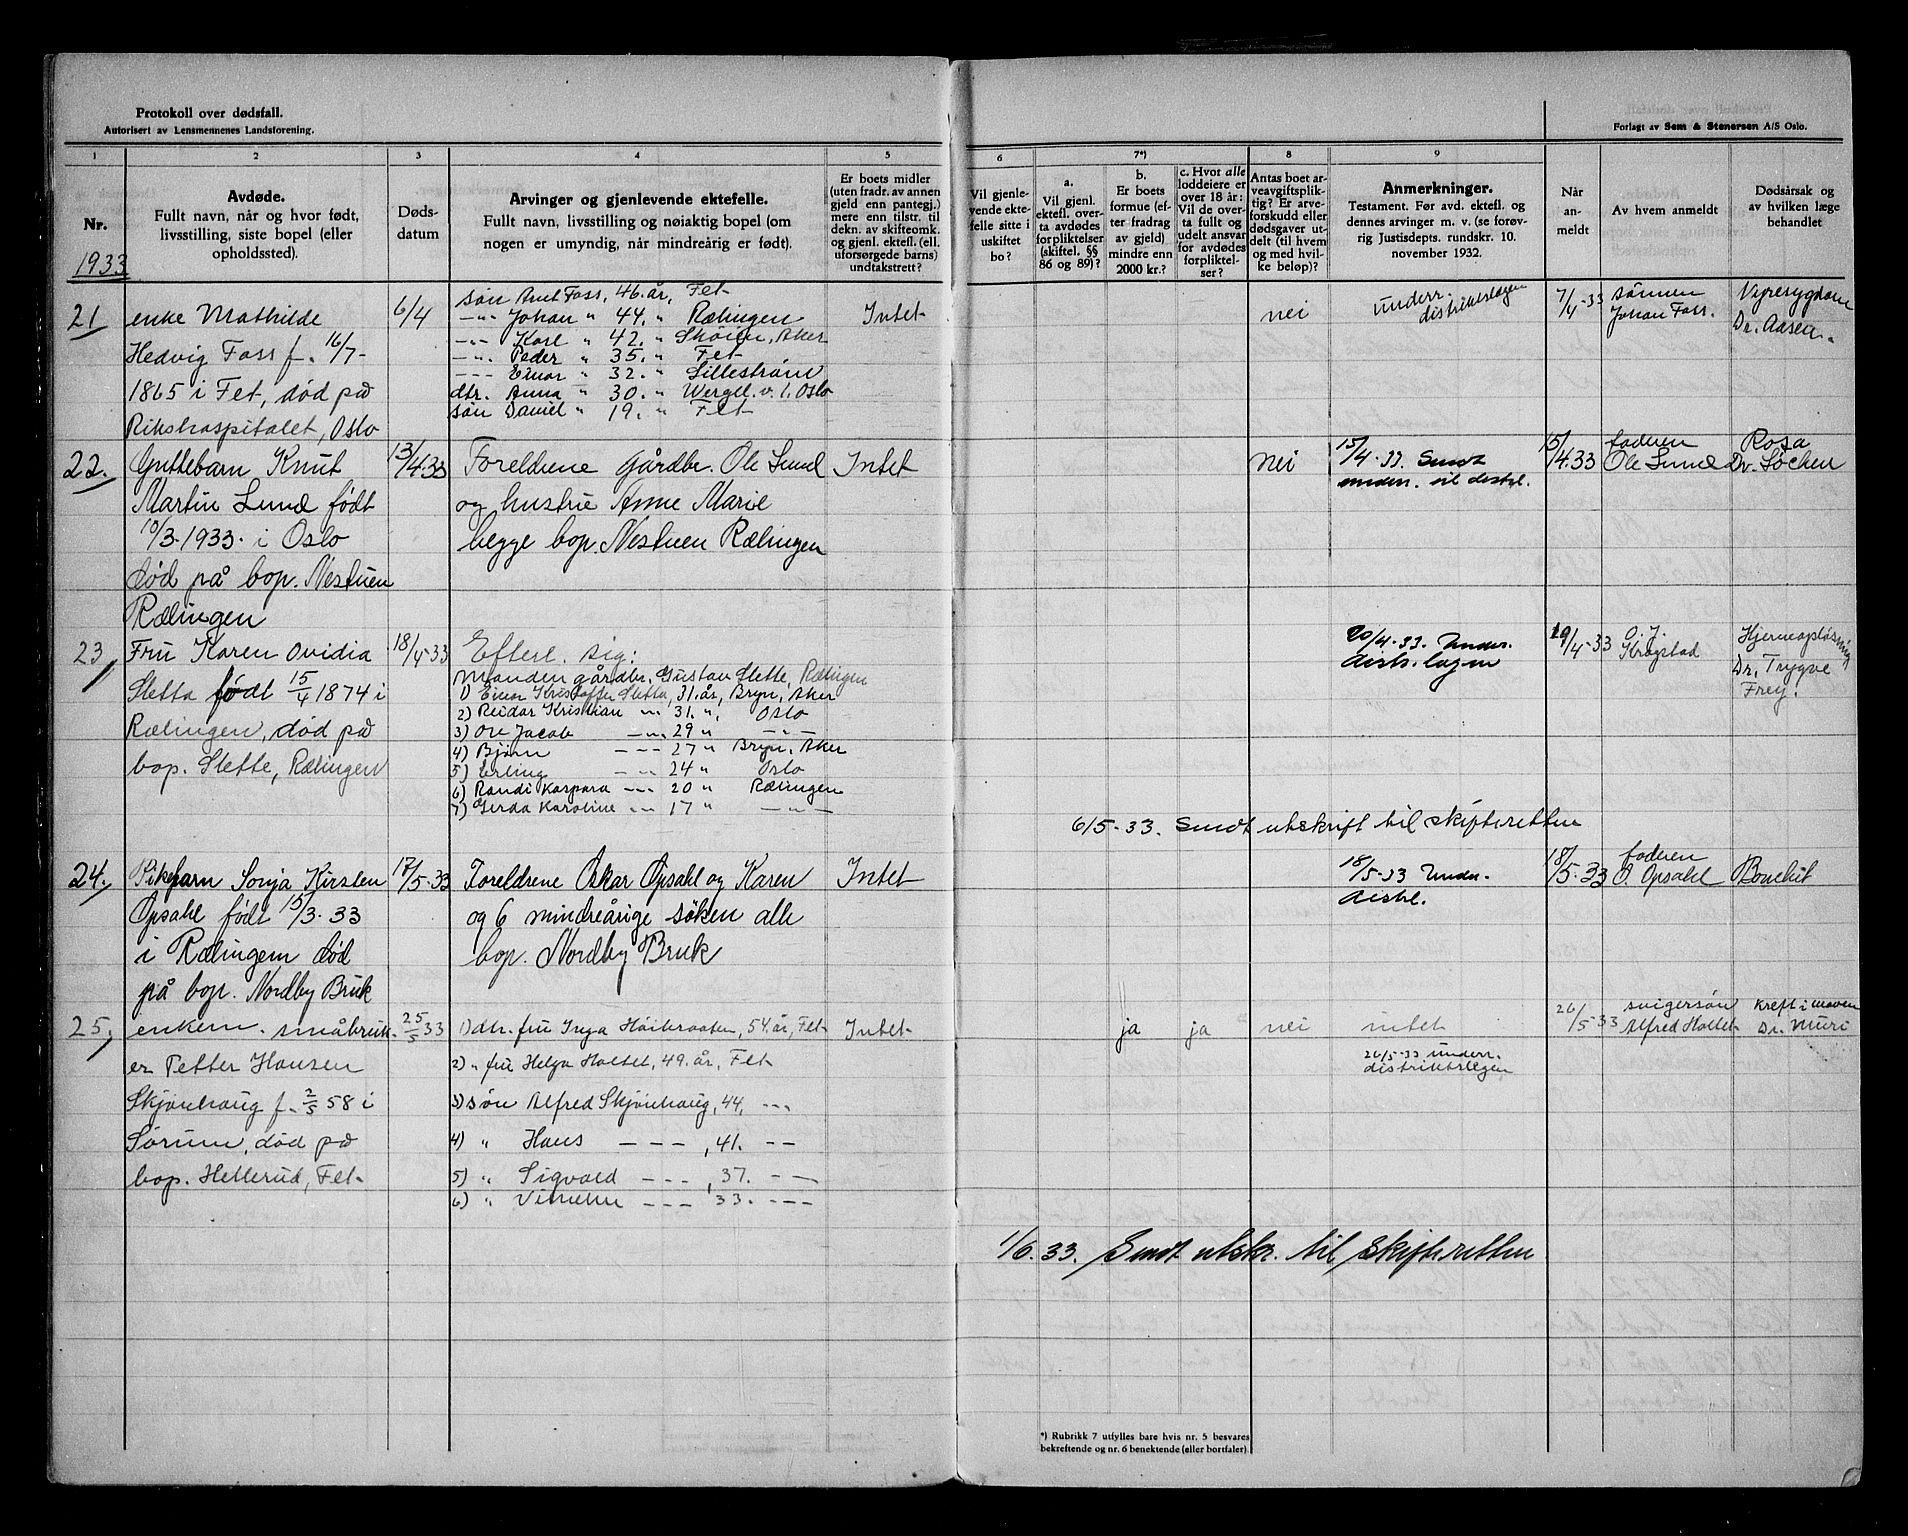 Protokoll over dødsfall.
Autorisert av Lensmennenes Landsforening.
Forlagt av Sem & Stenersen A/S Oslo.
1 2 3 4 5 6 7*) 8 9
Nr.
1933
Avdøde.
Fullt navn, når og hvor født,
livsstilling, siste bopel (eller
opholdssted).
Døds-
datum
Arvinger og gjenlevende ektefelle.
Fullt navn, livsstilling og nøiaktig bopel (om
nogen er umyndig, når mindreårig er født).
Er boets midler
(uten fradr. av annen
gjeld enn pantegj.)
mere enn tilstr. til
dekn. av skifteomk.
og gjenl. ektefl. (ell.
uforsørgede barns)
undtakstrett?
Vil gjenle-
vende ekte-
felle sitte i
uskiftet
bo?
a.
Vil gjenl.
ektefl. over-
ta avdødes
forpliktelser
(skiftel. §§
86 og 89)?
b.
Er boets
formue (ef-
ter fradrag
av gjeld)
mindre enn
2000 kr.?
c. Hvor alle
loddeiere er
over 18 år:
Vil de over-
ta fullt og
udelt ansvar
for avdødes
forpliktel-
ser?
Antas boet ar-
veavgiftsplik-
tig? Er arve-
forskudd eller
dødsgaver ut-
delt (til hvem
og med hvil-
ke beløp)?
Anmerkninger.
Testament. Før avd. ektefl. og
dennes arvinger m. v. (se forøv-
rig Justisdepts. rundskr. 10.
november 1932.
Når
an-
meldt
Av hvem anmeldt
Dødsårsak og
av hvilken læge
behandlet
21
enke Mathilde
Hedvig Foss f. 16/7-
1865 i Fet, død på
Rikshospitalet, Oslo
6/4
søn Arnt Foss, 46. år, Fet
-"- Johan " 44. " Rælingen
-"- Karl " 42. " Skøien, Aker
-"- Peder " 35. " Fet
--- Einar " 32. " Lillestrøm
dtr. Anna " 30. " Wergel. v. 1. Oslo
søn Daniel " 19. " Fet
Intet
nei
underr.
distriktslægen
7/4-33
sønnen
Johan Foss.
Nyresygdom
Dr. Aasen.
22.
Guttebarn Knut
Martin Lund født
10/3-1933. i Oslo
død på bop. Nestuen
Rælingen
13/4.33
Foreldrene Gårdbr. Ole Lund
og hustru Anne Marie
begge bop. Nestuen Rælingen
Intet
nei
15/4-33. Sendt
under. til distrl.
15/4.33
faderen
Ole Lund
Rosa
Dr. Søchen
23,
Fru Karen Ovidia
Sletta født 15/4 1874 i
Rælingen, død på
bop. Slette, Rælingen
18/4-33
Efterl. sig:
Manden gårdbr. Gustav Slette, Rælingen
1) Einar Kristoffer Sletta, 31. år, Bryn, Aker
2) Reidar Kristian -"- 31. ", Oslo
3) Ole Jacob -"- 29 " -"-
4) Bjørn --- 27 " Bryn, Aker
5) Erling -"- 24 " Oslo
6) Randi Kaspara --- 20 " Rælingen
7) Gerda Karoline -"- 17 " -"-
20/4-33. Under.
distr. lægen
19/4-33
O. J.
Krogstad
Hjerneopløsning
Dr. Trygve
Frey.
6/5-33. Sendt utskrift til skifteretten
24,
Pikebarn Sonja Kirsten
Opsahl født 15/3-33
i Rælingen død
på bop. Nordby Bruk
17/5-33
Foreldrene Oskar Opsahl og Karen
og 6 mindreårige søsken alle
bop. Nordby Bruk
Intet
18/5-33 Under.
distrl.
18/5-33
faderen
O. Opsahl
Bronchit
25,
enkem. småbruk-
er Petter Hansen
Skjønhaug f. 2/5 58 i
Sørum, død på
bop. Hellerud, Fet
25/5 33
1) dtr. fru Inga Høibraaten, 54. år, Fet
2) " fru Helga Holtet, 49. år, Fet
3) søn Alfred Skjønhaug, 44, ---
4) " Hans ---, 41. --
5) " Sigvald ---, 37. ---
6) " Vilhelm --- 33. ---
Intet
ja ja nei intet
26/5-33 underr.
distriktslegen
26/5-33
svigersøn
Alfred Holtet
Kreft i maven
Dr. Muri
1/6.33. Sendt utskr. til skifteretten
*) Rubrikk 7 utfylles bare hvis nr. 5 besvares
bekreftende og nr. 6 benektende (eller bortfaler)